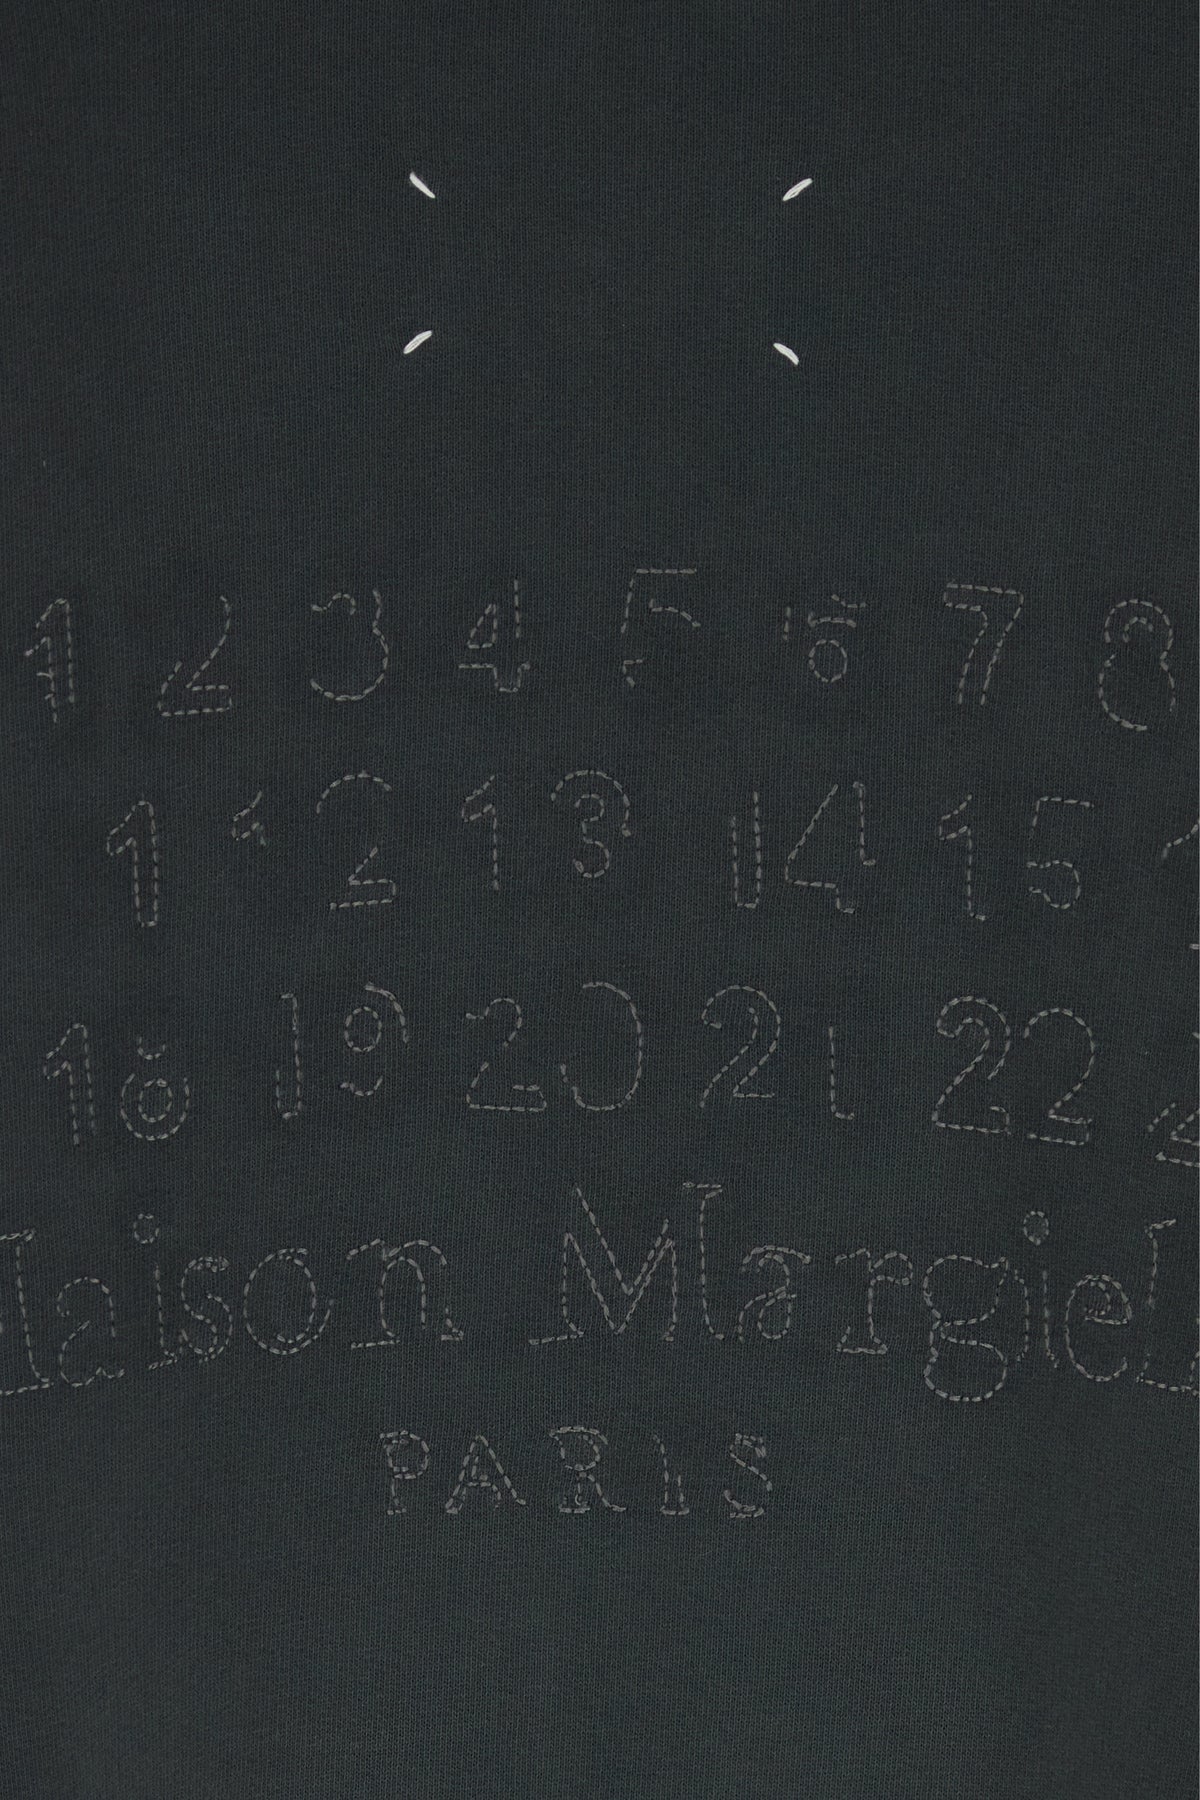 1 2 3 4 5 6 7 8
11 12 13 14 15
18 19 20 21 22 2
laison Margiel
PARIS